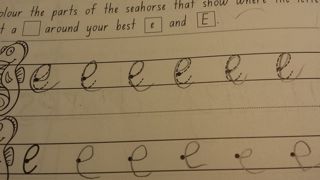 olour the parts of the seahorse that show where the lette
t a □ around your best e and E.
e e e e e e
e e e e e e